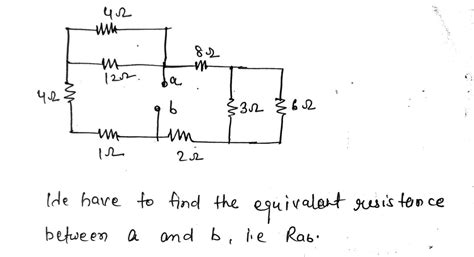 4Ω
8Ω
12Ω
a
4Ω
b
3Ω
6Ω
1Ω
2Ω
We have to find the equivalent resistence
between a and b, i.e Rab.